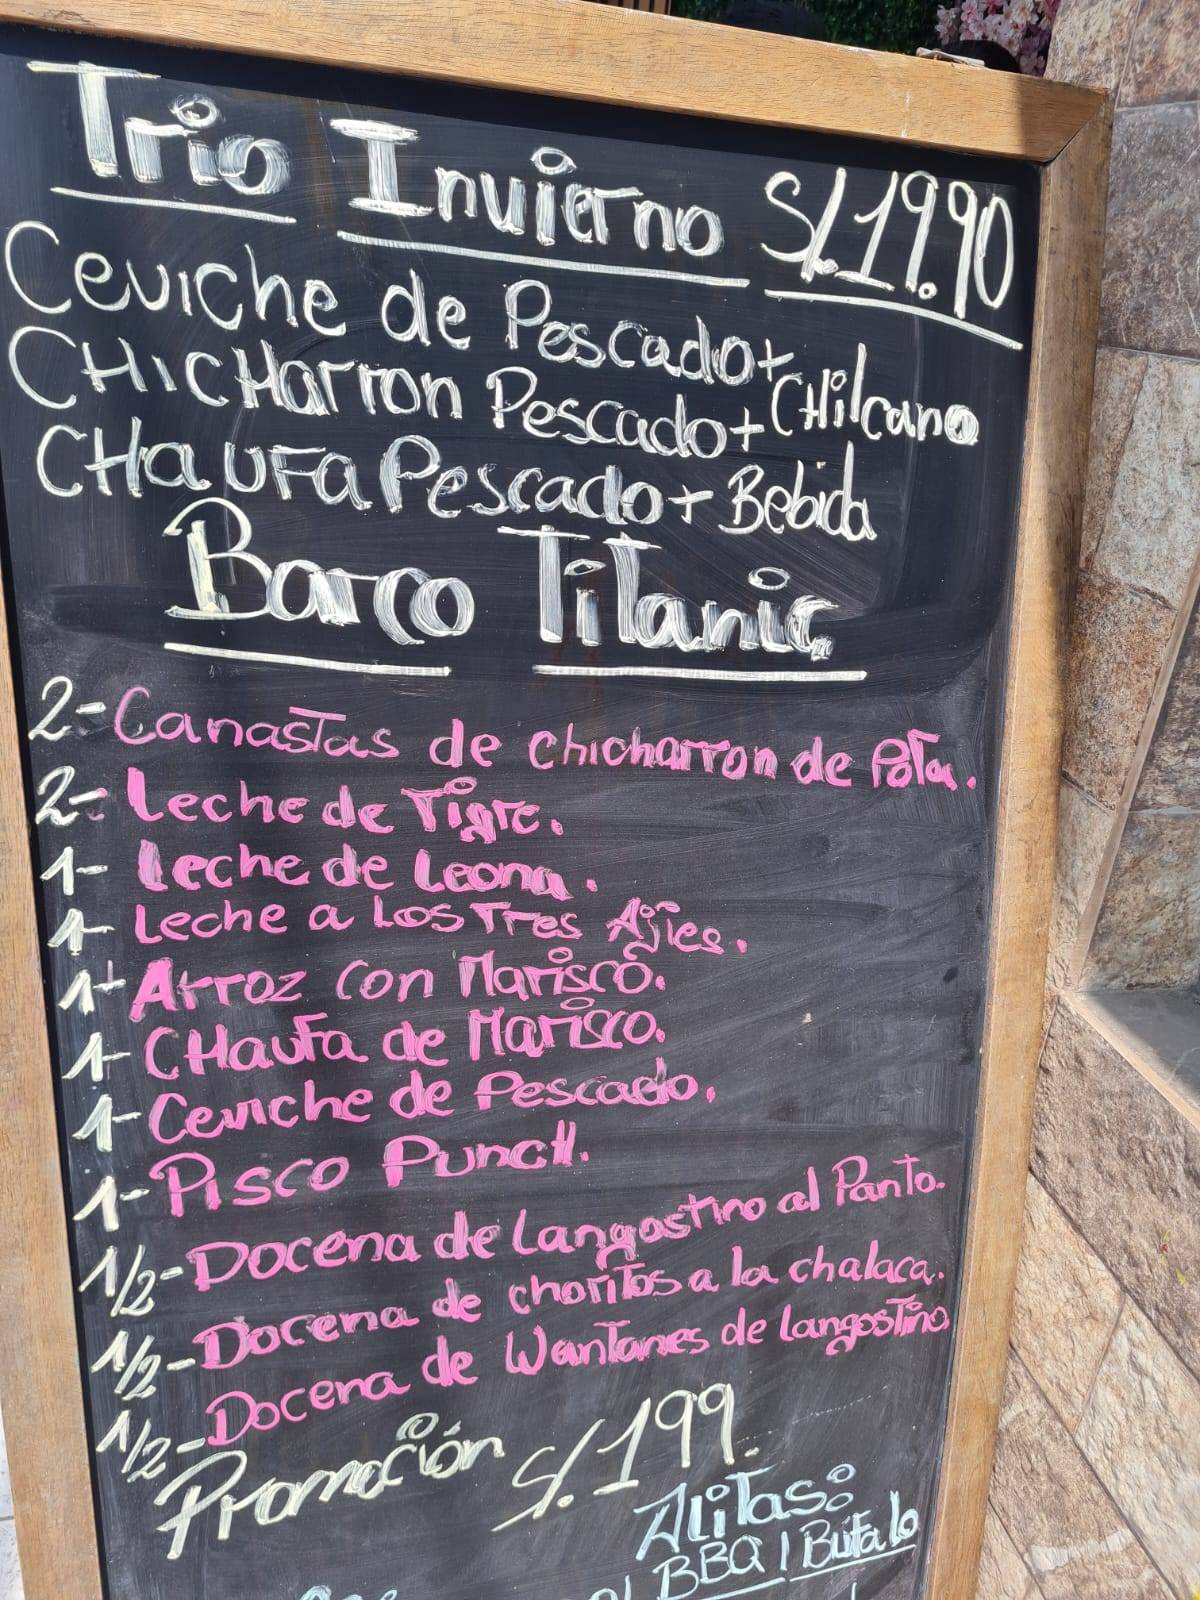 Trio Invierno S/.19.90
Ceviche de Pescado+
CHICHarron Pescado+ CHilcano
CHaUFa Pescado+ Bebida
Barco Titanic
2- Canastas de chicharron de Pota.
2- Leche de Tigre.
1- Leche de Leona.
1- Leche a Los Tres Ajies.
1- Arroz con Marisco.
1- CHaufa de Marisco.
1- Ceviche de Pescado.
1- Pisco Punch.
1/2- Docena de Langostino al Panto.
1/2- Docena de choritos a la chalaca.
1/2- Docena de Wantanes de langostino.
Promoción S/.199.
Alitas:
BBQ | Bufalo